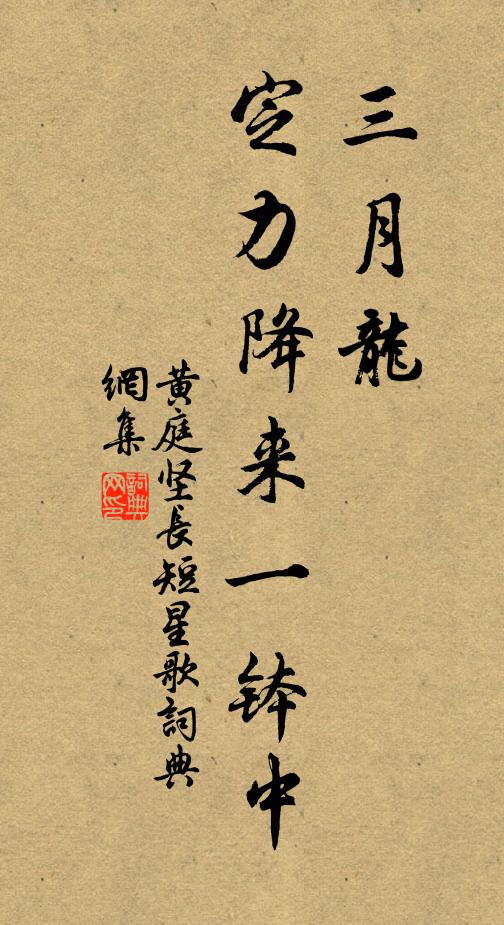 三月龍
定力降来一钵中
黄庭坚長短星歌詞典
網集
詞典
网印